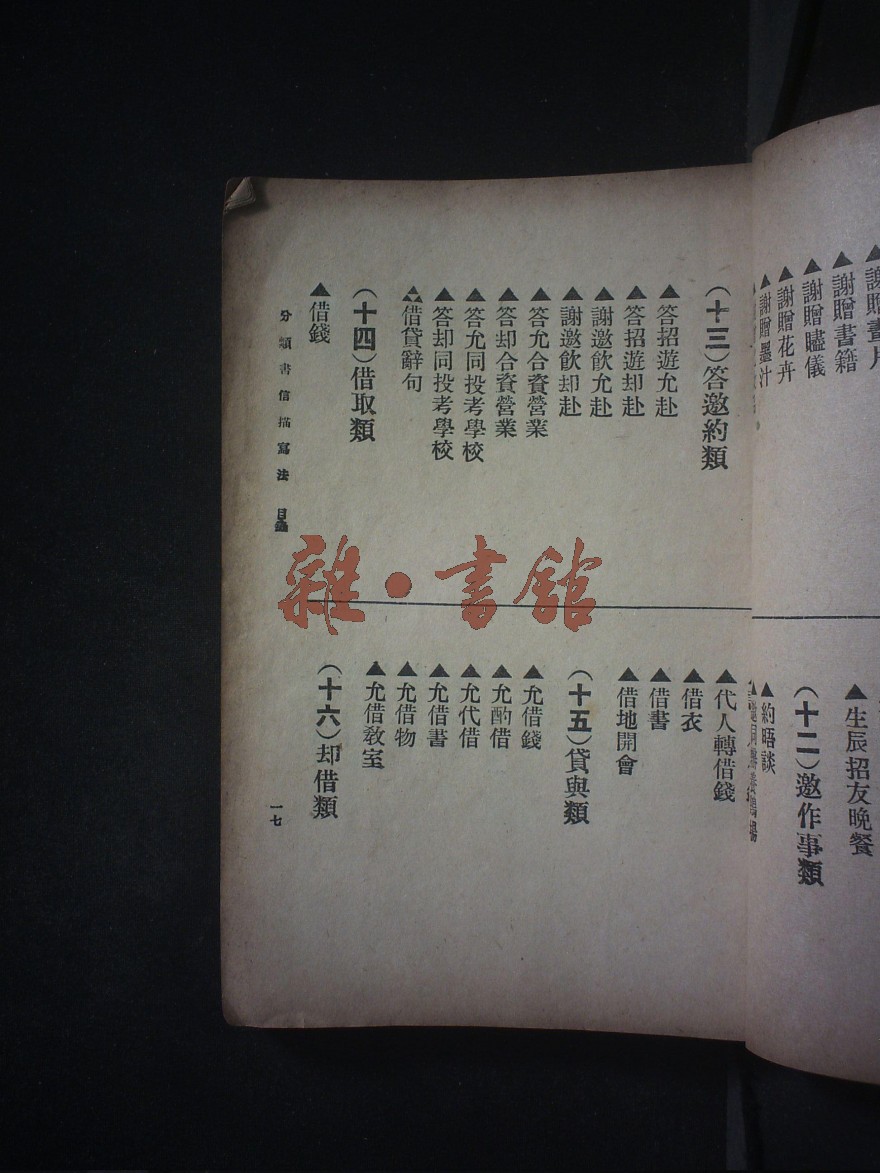 謝贈畫片
謝贈書籍
謝贈贐儀
謝贈花卉
謝贈墨汁
生辰招友晚餐
（十二）邀作事類
▲約晤談
（十三）答邀約類
▲答招遊允赴
▲答招遊却赴
▲謝邀飲允赴
▲謝邀飲却赴
▲答允合資營業
▲答却合資營業
▲答允同投考學校
▲答却同投考學校
借貸辭句
（十四）借取類
▲借錢
▲代人轉借錢
▲借衣
▲借書
▲借地開會
（十五）貸與類
▲允借錢
▲允酌借
▲允代借
▲允借書
▲允借物
▲允借教室
（十六）却借類
分類書信描寫法 目錄
一七
雜·書館